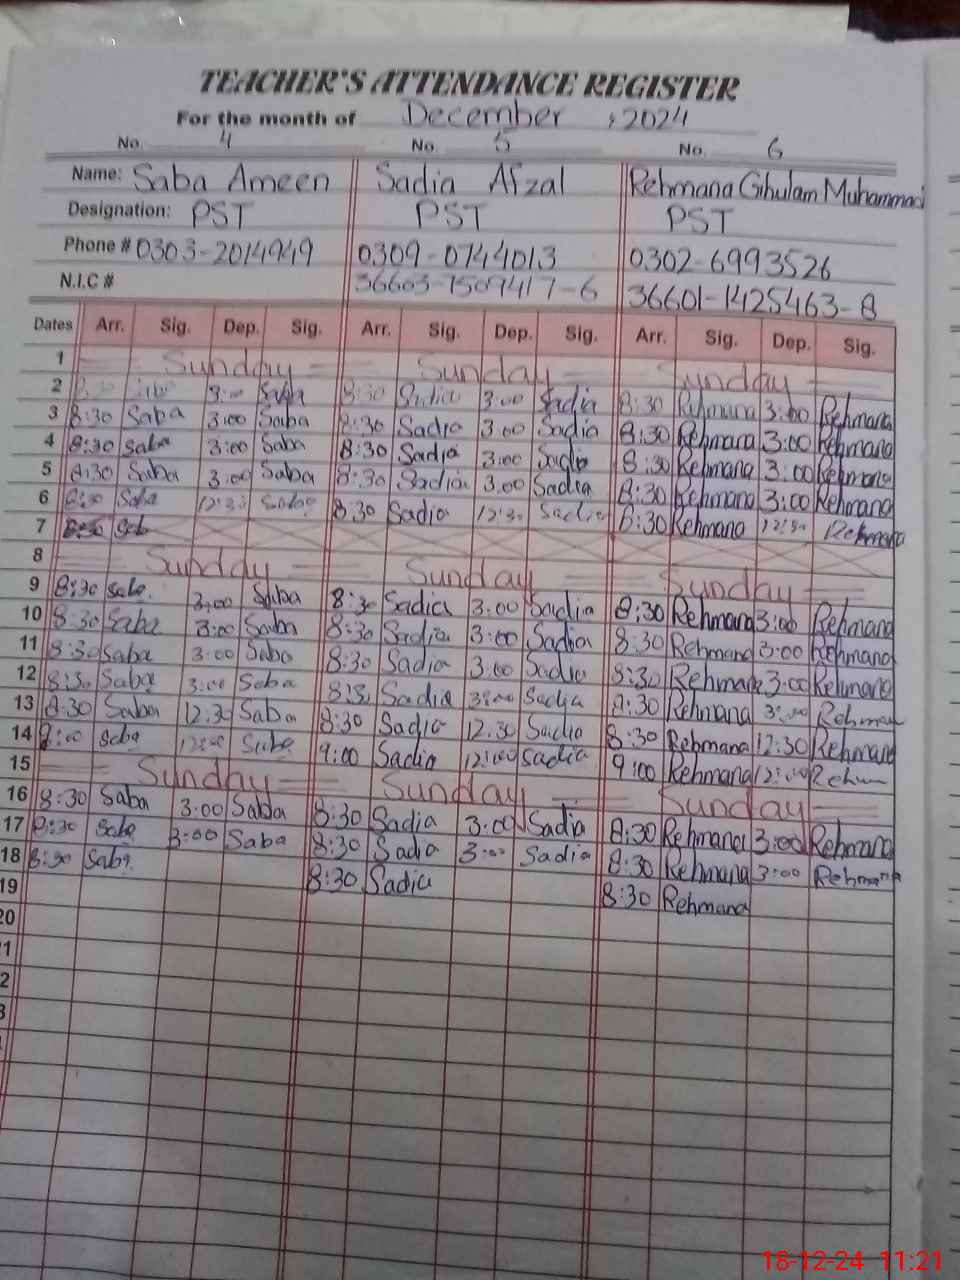 TEACHER'S ATTENDANCE REGISTER
For the month of December, 2024
No. 4 No. 5 No. 6
Name: Saba Ameen Sadia Afzal Rehmana Ghulam Muhammad
Designation: PST PST PST
Phone # 0303-2014949 0309-0744013 0302-6993526
N.I.C # 36603-7509417-6 36601-1425463-8
Dates Arr. Sig. Dep. Sig. Arr. Sig. Dep. Sig. Arr. Sig. Dep. Sig.
1 Sunday Sunday Sunday
2 3:00 Saba 8:30 Sadia 3:00 Sadia 8:30 Rehmana 3:00 Rehmana
3 8:30 Saba 3:00 Saba 8:30 Sadia 3:00 Sadia 8:30 Rehmana 3:00 Rehmana
4 8:30 Saba 3:00 Saba 8:30 Sadia 3:00 Sadia 8:30 Rehmana 3:00 Rehmana
5 8:30 Saba 3:00 Saba 8:30 Sadia 3.00 Sadia 8:30 Rehmana 3:00 Rehmana
6 8:30 Saba 12:30 Saba 8:30 Sadia 12:30 Sadia 8:30 Rehmana 12:30 Rehmana
7
8 Sunday Sunday Sunday
9 8:30 Saba 3:00 Saba 8:30 Sadia 3:00 Sadia 8:30 Rehmana 3:00 Rehmana
10 8:30 Saba 3:00 Saba 8:30 Sadia 3:00 Sadia 8:30 Rehmana 3:00 Rehmana
11 8:30 Saba 3:00 Saba 8:30 Sadia 3:00 Sadia 8:30 Rehmana 3:00 Rehmana
12 8:30 Saba 3:00 Saba 8:30 Sadia 3:00 Sadia 8:30 Rehmana 3:00 Rehmana
13 8:30 Saba 12:30 Saba 8:30 Sadia 12:30 Sadia 8:30 Rehmana 12:30 Rehmana
14 9:00 Saba 12:00 Saba 9:00 Sadia 12:00 Sadia 9:00 Rehmana 12:00
15 Sunday Sunday Sunday
16 8:30 Saba 3:00 Saba 8:30 Sadia 3:00 Sadia 8:30 Rehmana 3:00 Rehmana
17 8:30 Saba 3:00 Saba 8:30 Sadia 3:00 Sadia 8:30 Rehmana 3:00 Rehmana
18 8:30 Saba 8:30 Sadia 8:30 Rehmana
19
20
1
2
3
18-12-24 11:21